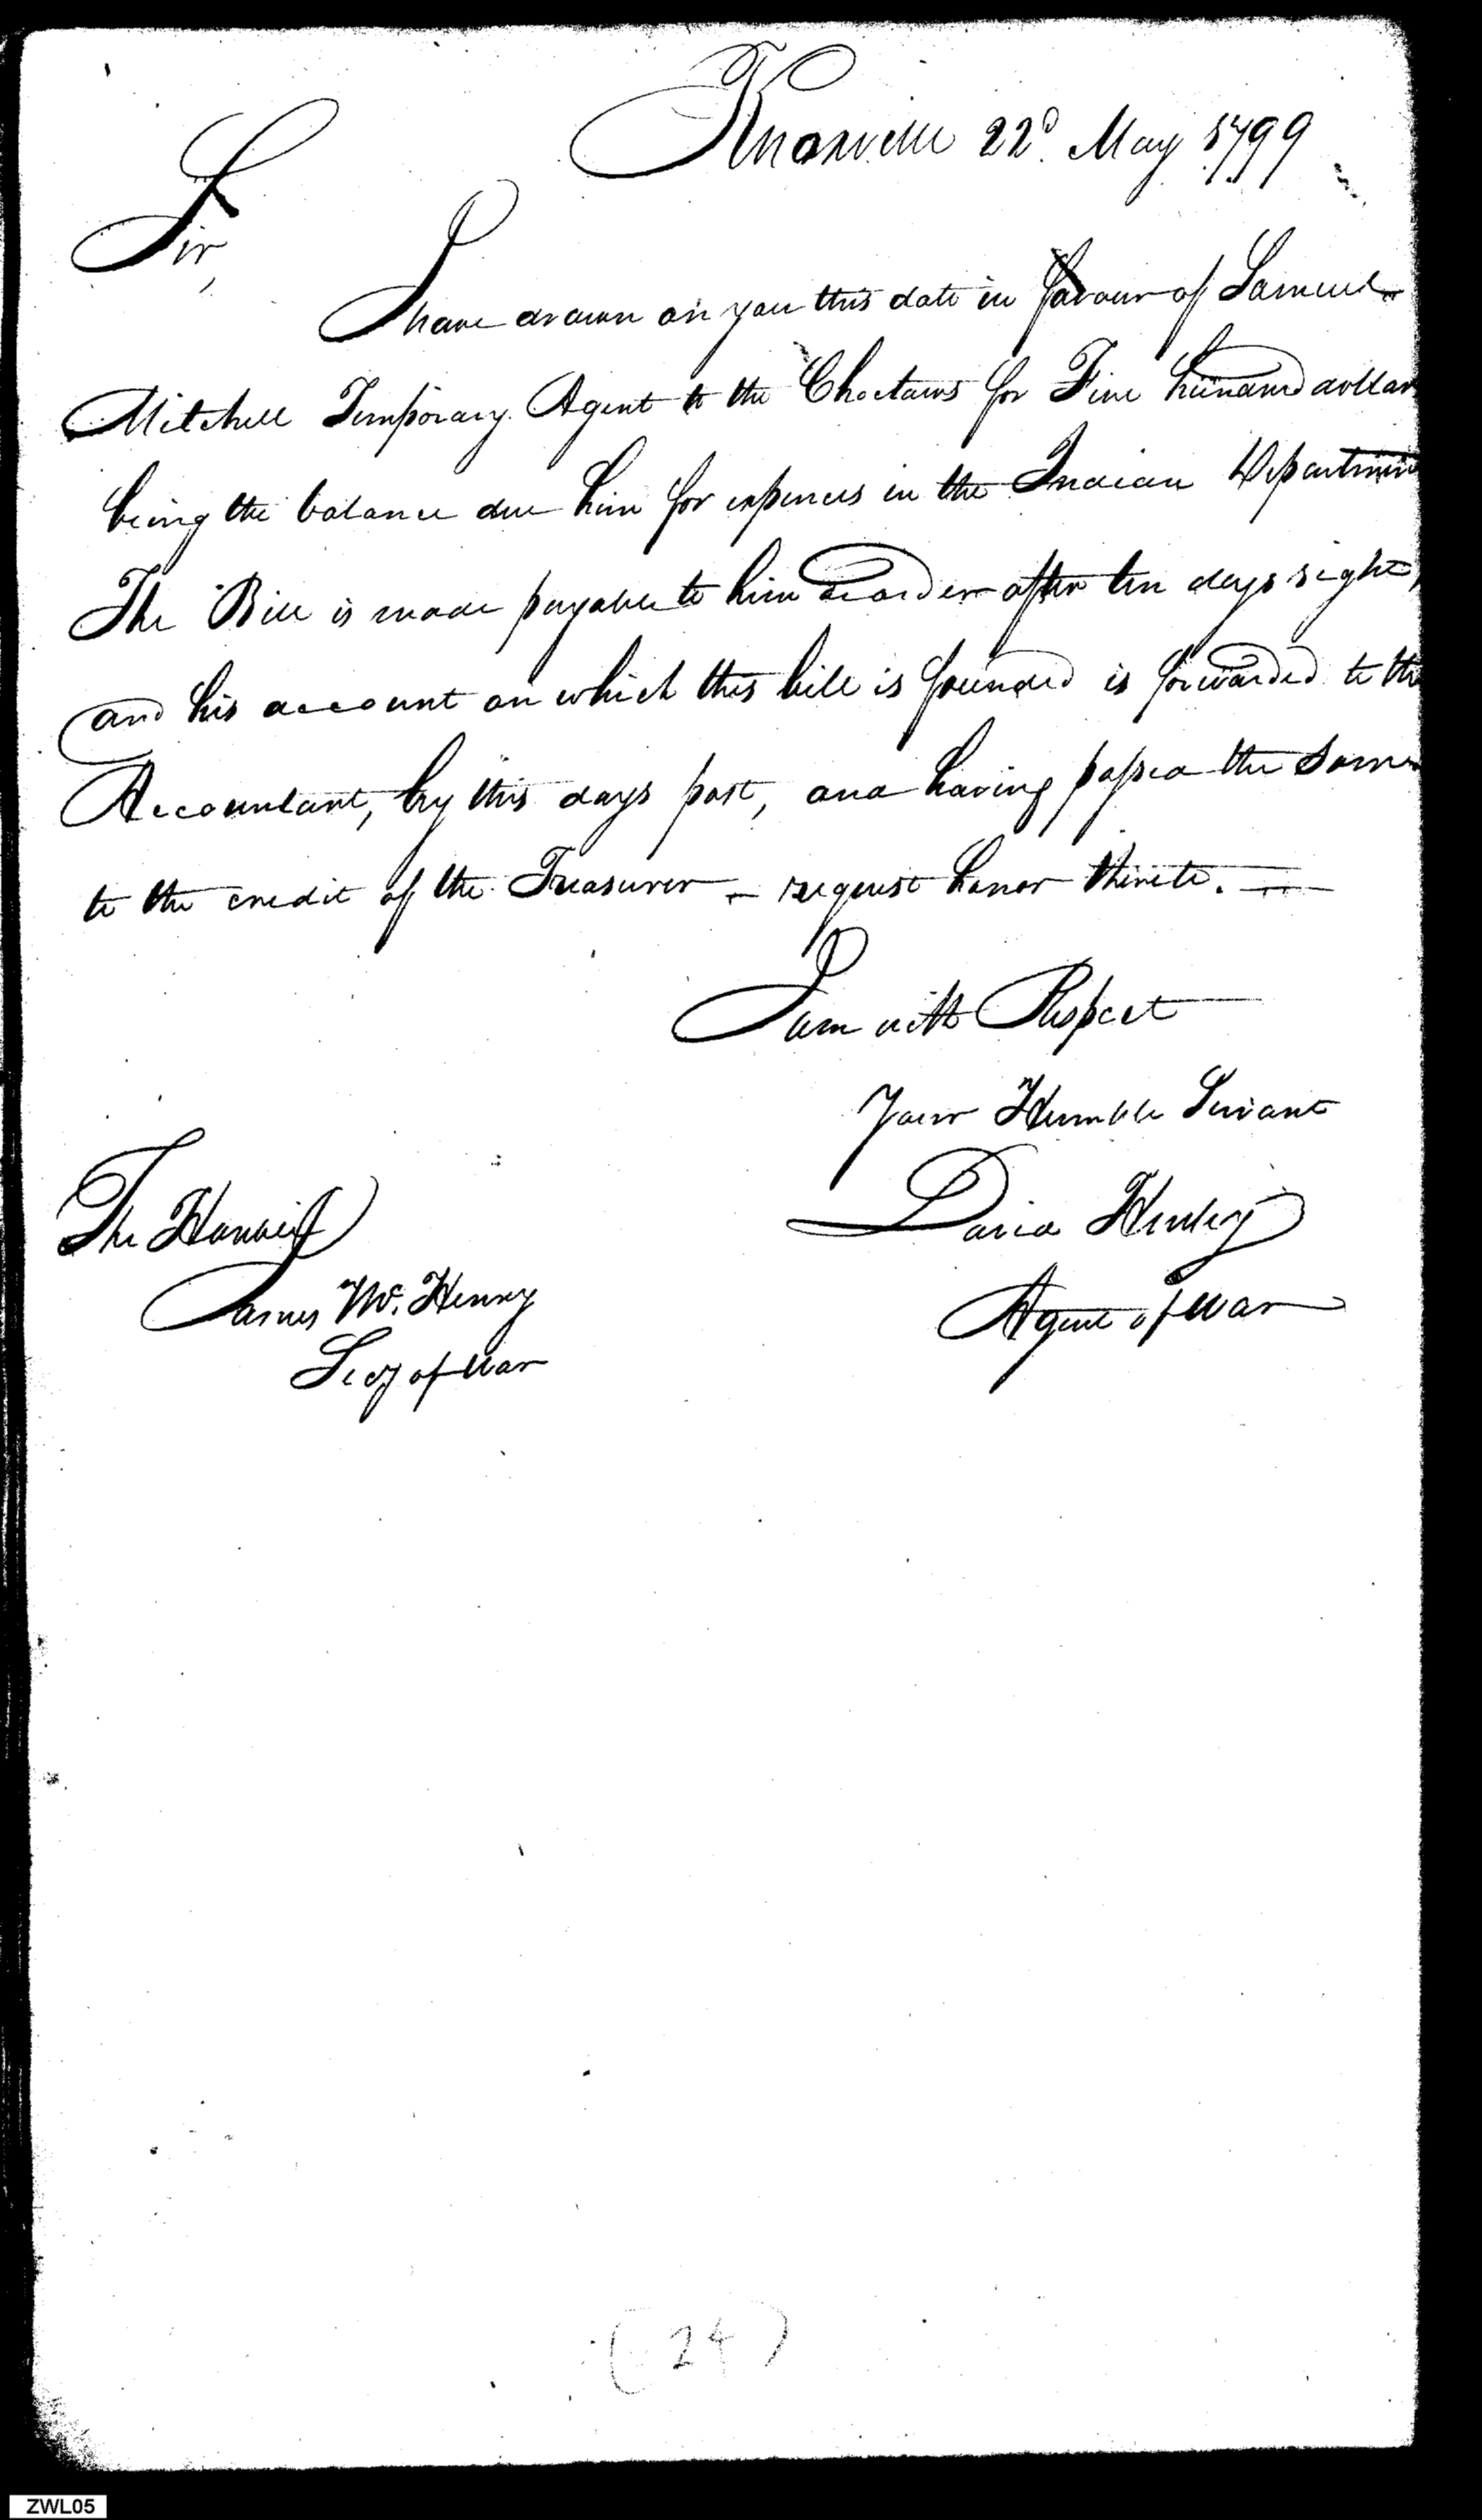 Knoxville 22d. May 1799
Sir,
I have drawn on you this date in favour of Samuel
Mitchell Temporary Agent to the Choctaws for Five hundred dollars
being the balance due him for expences in the Indian Department
The Bill is made payable to him or order after ten days sight,
and his account on which this bill is founded is forwarded to the
Accountant, by this days post, and having passed the same
to the credit of the Treasurer - request honor thereto.
I am with Respect
Your Humble Servant
David Henley
Agent of War
The Honble
James Mc. Henry
Secy of War
(24)
ZWL05